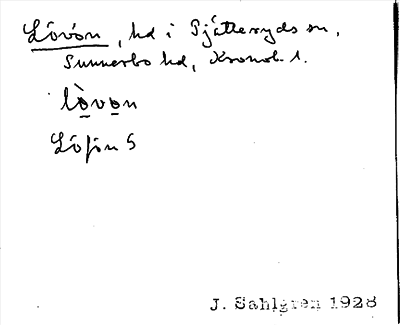 Lövön, hd i Pjätteryds sn,
Sunnerbo hd, Kronob. l.
lòvon
Löfön S
J. Sahlgren 1928